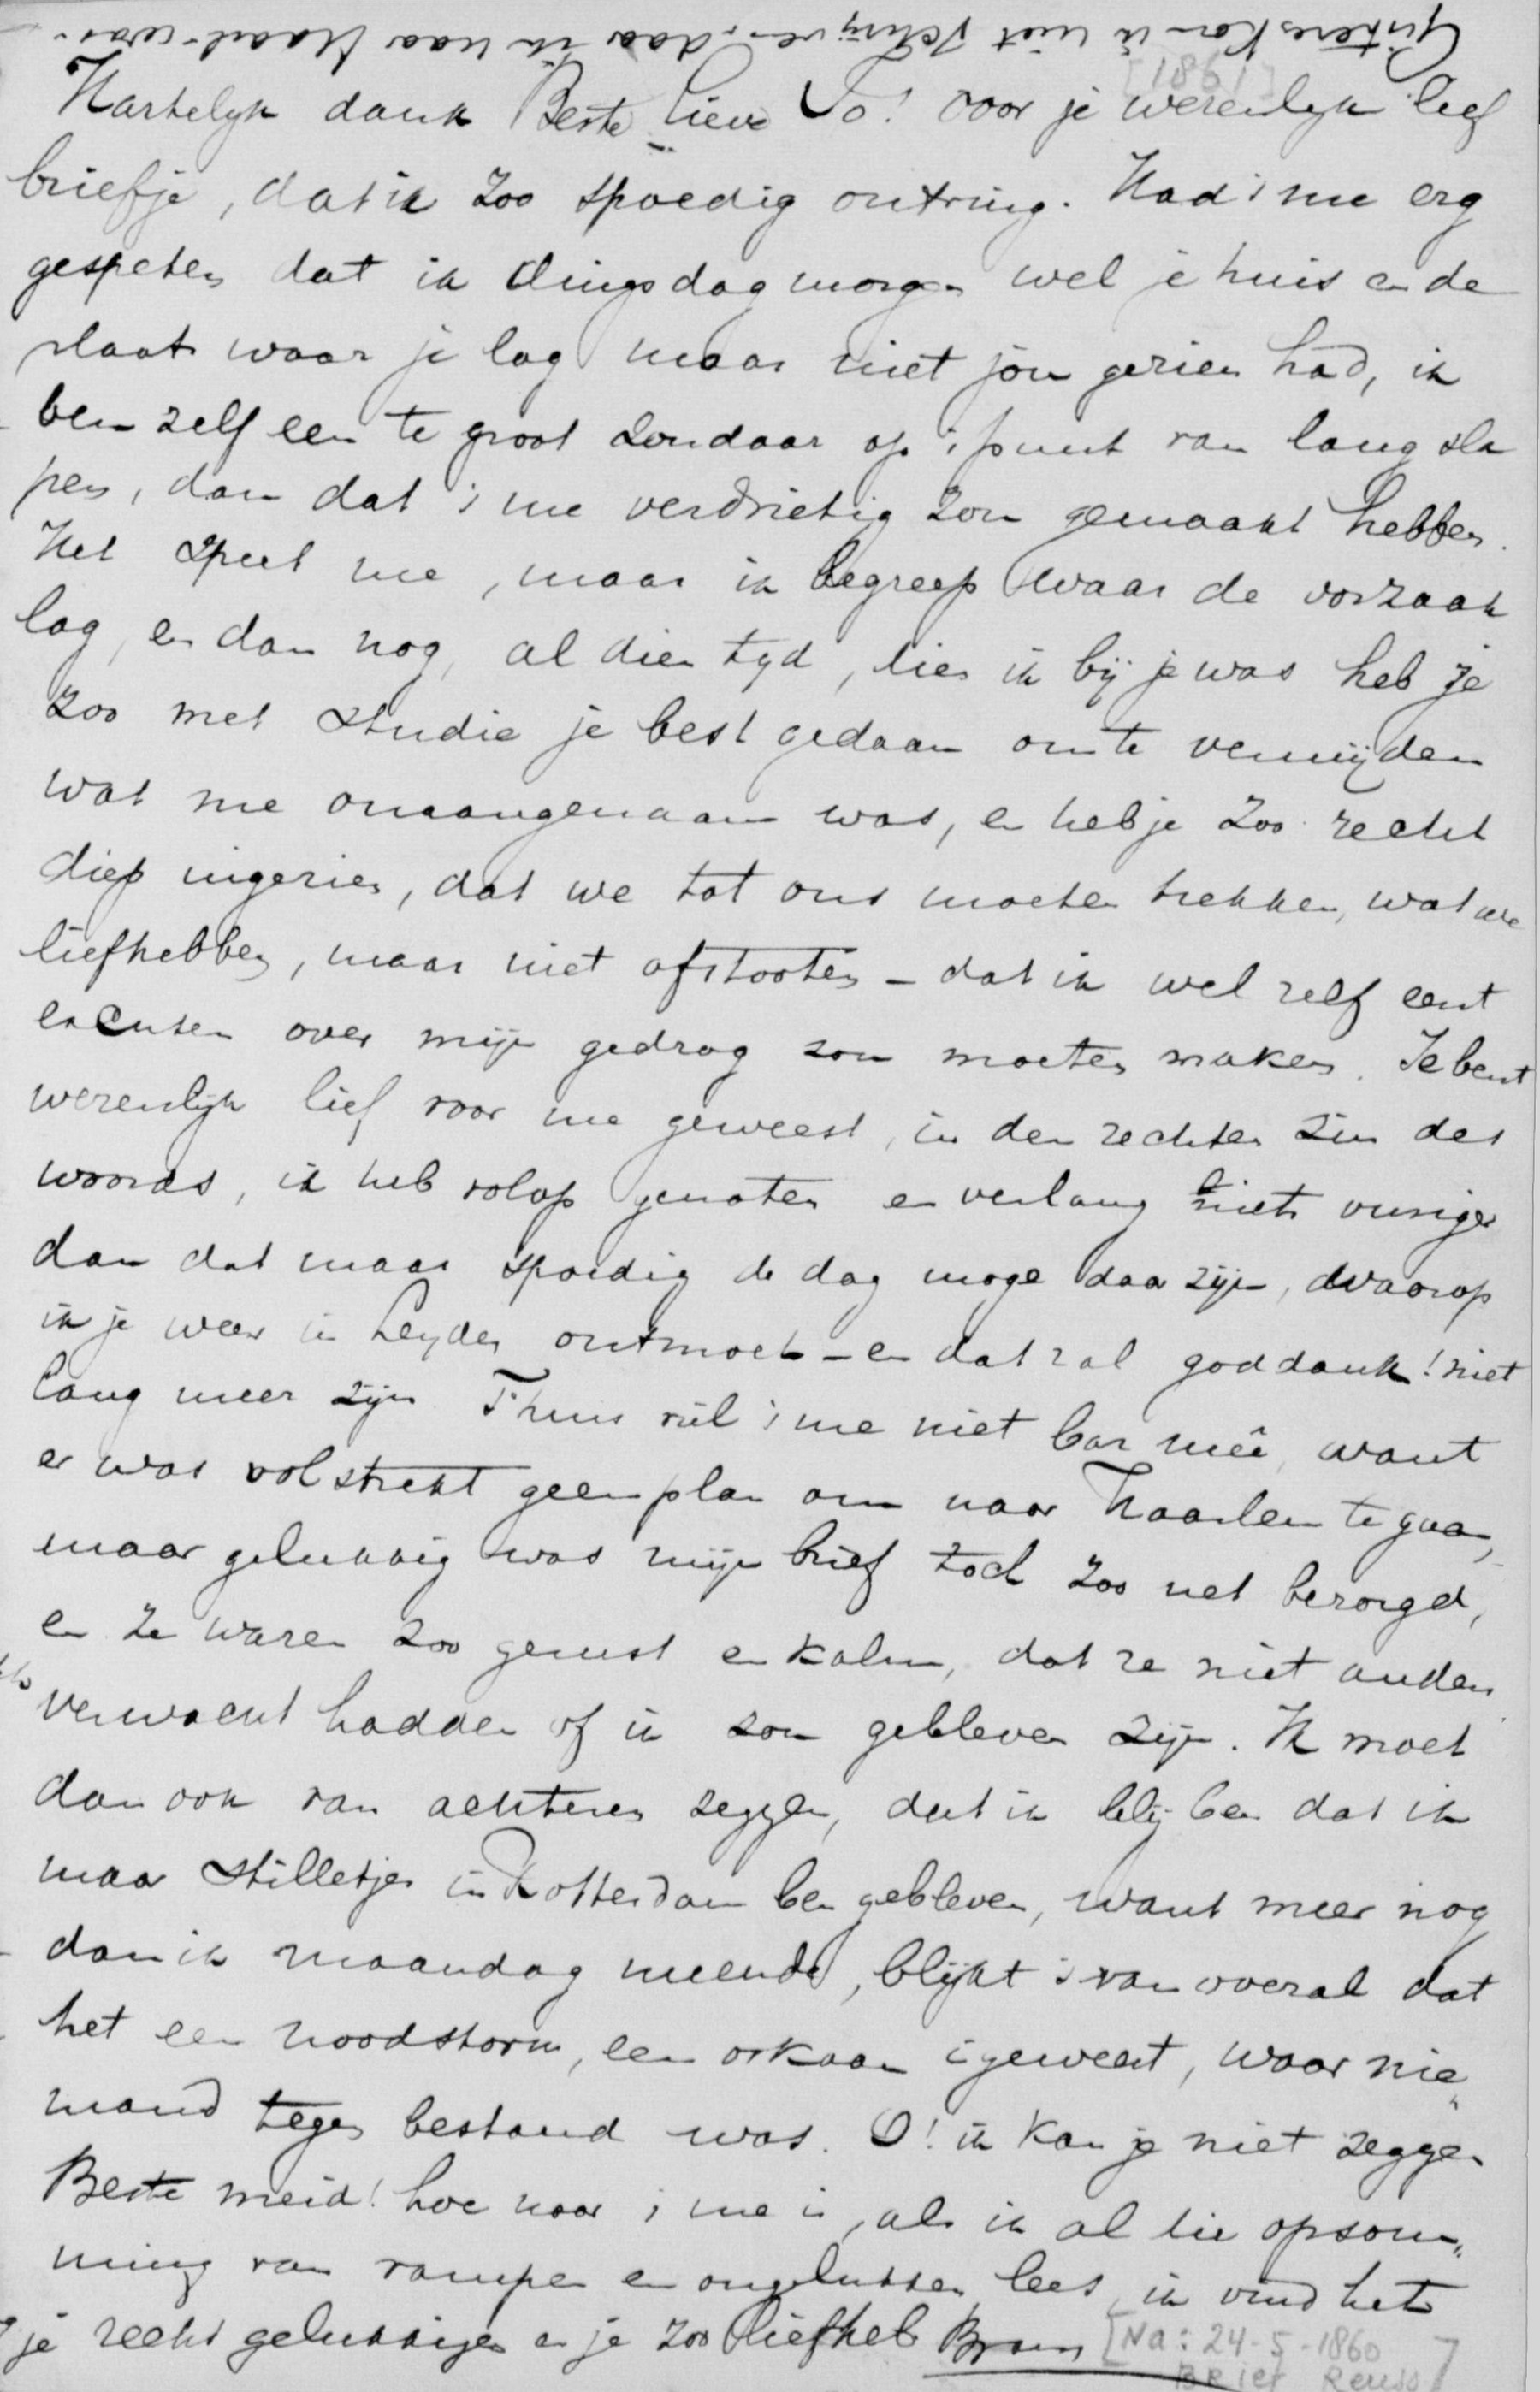 Gisteren kon ik niet schrijven, daar ik naar Haarl. was.
[1861]
Hartelyk dank Beste Lieve Jo! voor je wezenlyk lief
briefje, dat ik zoo spoedig ontving. Had 't me erg
gespeten dat ik dingsdagmorgen wel je huis en de
plaats waar je lag maar niet jou gezien had, ik
ben zelf een te groot zondaar op 't punt van lang sla
pen, dan dat 't me verdrietig zou gemaakt hebben.
Het speet me, maar ik begreep waar de oorzaak
lag, en dan nog, al dien tyd, dien ik bij je was heb je
zoo met studie je best gedaan om te vermijden
wat me onaangenaam was, en heb je zoo recht
diep ingezien, dat we tot ons moeten trekken, wat we
liefhebben, maar niet afstooten – dat ik wel zelf eerst
excusen over mijn gedrag zou moeten maken. Je bent
wezenlyk lief voor me geweest, in den rechten zin des
woords, ik heb volop genoten en verlang niets vuriger
dan dat maar spoedig de dag moge daar zijn, waarop
ik je weer in Leyden ontmoet – en dat zal goddank! niet
lang meer zijn T'huis viel 't me niet bar meê, want
er was volstrekt geen plan om naar Haarlem te gaan,
maar gelukkig was mijn brief toch zoo net bezorgd,
en ze waren zoo gerust en kalm, dat ze niet anders
verwacht hadden of ik zou gebleven zijn. Ik moet
dan ook van achteren zeggen, dat ik blij ben dat ik
maar stilletjes in Rotterdam ben gebleven, want meer nog
dan ik maandag meende, blijkt 't van overal dat
het een noodstorm, een orkaan is geweest, waar nie„
mand tegen bestand was. O! ik kan je niet zeggen
Beste meid! hoe naar 't me is, als ik al die opsom„
ming van rampen en ongelukken lees, ik vind het
je recht gelukkigen en je zoo liefheb Bram
[Na: 24-5-1860
Brief Reuss]